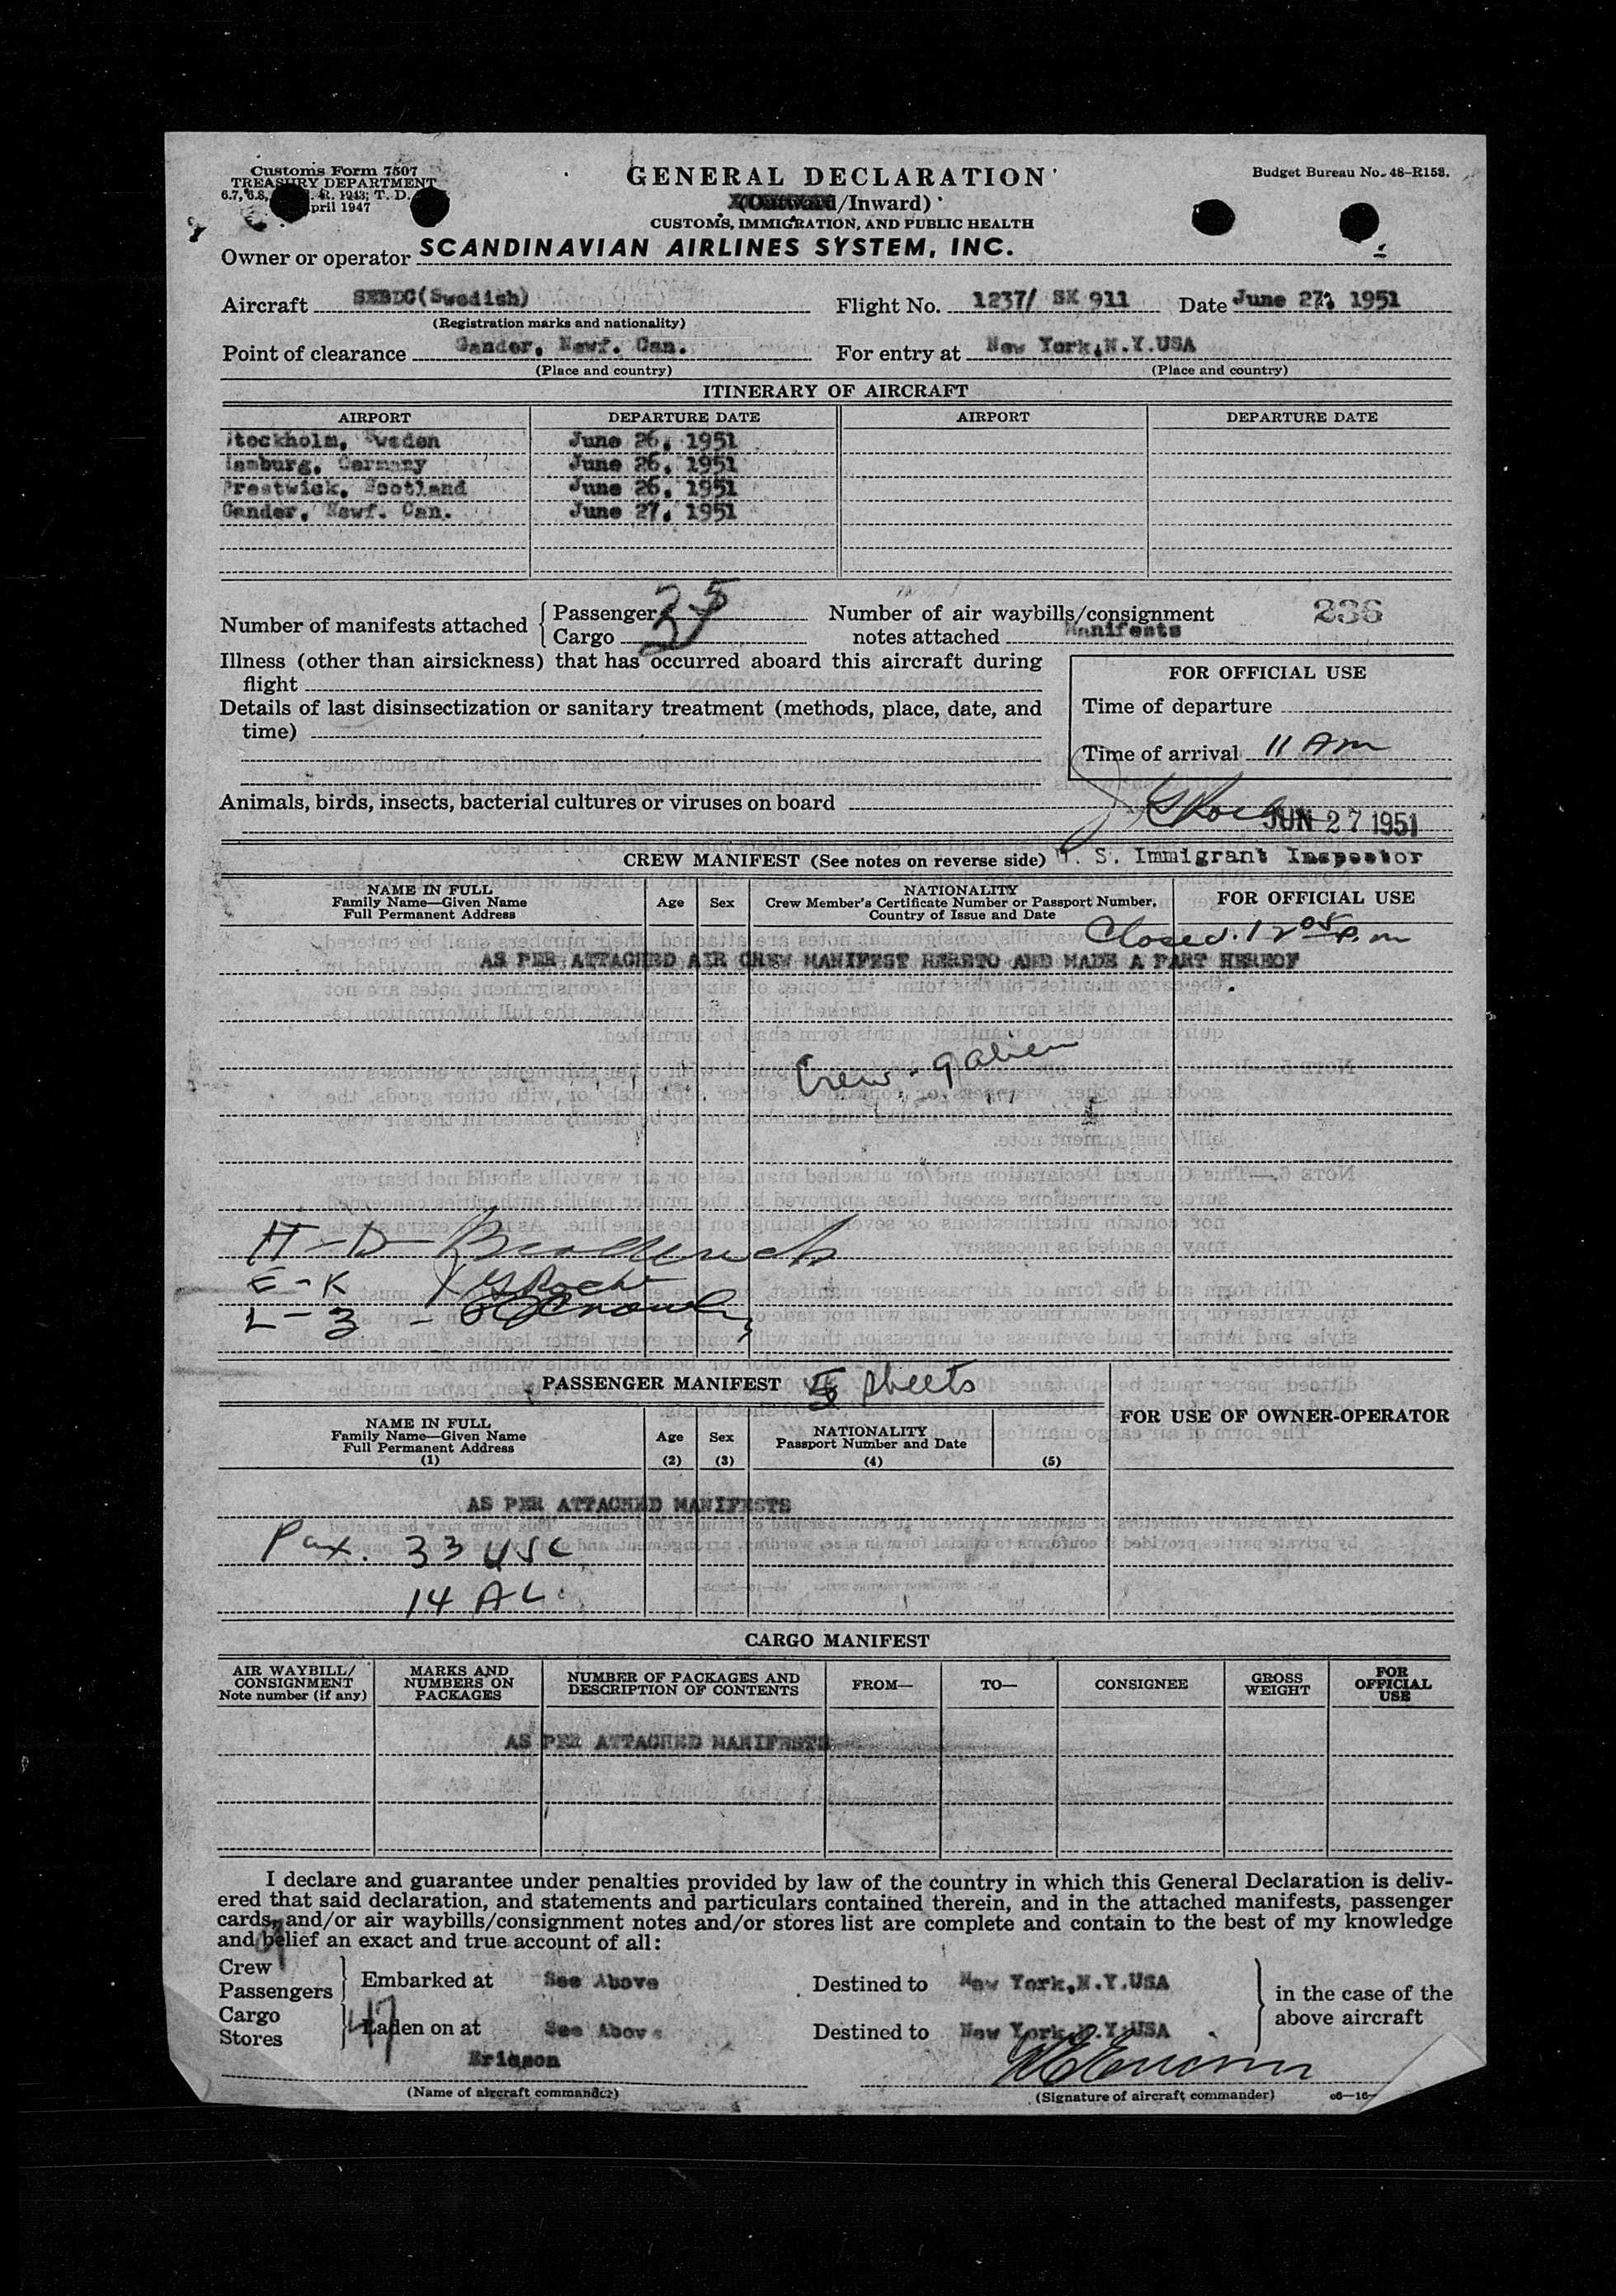 Customs Form 7507
TREASURY DEPARTMENT
GENERAL DECLARATION
Budget Bureau No. 48-R158.
(Outward/Inward)
CUSTOMS, IMMIGRATION, AND PUBLIC HEALTH
Owner or operator SCANDINAVIAN AIRLINES SYSTEM, INC.
Aircraft SEBDC(Swedish) Flight No. 1237/ SK 911 Date June 27, 1951
(Registration marks and nationality)
Point of clearance Gander, Newf. Can. For entry at New York,N.Y.USA
(Place and country) (Place and country)
ITINERARY OF AIRCRAFT
AIRPORT DEPARTURE DATE AIRPORT DEPARTURE DATE
Stockholm, Sweden June 26, 1951
Hamburg, Germany June 26, 1951
Prestwick, Scotland June 26, 1951
Gander, Newf. Can. June 27, 1951
Number of manifests attached { Passenger
Cargo
Number of air waybills/consignment
notes attached Manifests
236
Illness (other than airsickness) that has occurred aboard this aircraft during
flight
Details of last disinsectization or sanitary treatment (methods, place, date, and
time)
FOR OFFICIAL USE
Time of departure
Time of arrival 11 Am
Animals, birds, insects, bacterial cultures or viruses on board
JUN 27 1951
CREW MANIFEST (See notes on reverse side) U. S. Immigrant Inspector
NAME IN FULL
Family Name—Given Name
Full Permanent Address
Age Sex
NATIONALITY
Crew Member's Certificate Number or Passport Number,
Country of Issue and Date
FOR OFFICIAL USE
Closed. 12 05 P.m
AS PER ATTACHED AIR CREW MANIFEST HERETO AND MADE A PART HEREOF
Crew - 9 alien
E - K
L - Z -
PASSENGER MANIFEST 5 sheets
NAME IN FULL
Family Name—Given Name
Full Permanent Address
(1)
Age
(2)
Sex
(3)
NATIONALITY
Passport Number and Date
(4) (5)
FOR USE OF OWNER-OPERATOR
AS PER ATTACHED MANIFESTS
Pax. 33 USC
14 AL
CARGO MANIFEST
AIR WAYBILL/
CONSIGNMENT
Note number (if any)
MARKS AND
NUMBERS ON
PACKAGES
NUMBER OF PACKAGES AND
DESCRIPTION OF CONTENTS
FROM—
TO—
CONSIGNEE
GROSS
WEIGHT
FOR
OFFICIAL
USE
AS PER ATTACHED MANIFESTS
I declare and guarantee under penalties provided by law of the country in which this General Declaration is deliv-
ered that said declaration, and statements and particulars contained therein, and in the attached manifests, passenger
cards, and/or air waybills/consignment notes and/or stores list are complete and contain to the best of my knowledge
and belief an exact and true account of all:
Crew 9
Passengers 47
Embarked at See Above Destined to New York,N.Y.USA
Cargo
Stores
Laden on at See Above Destined to New York,N.Y.USA
in the case of the
above aircraft
Ericson
(Name of aircraft commander) (Signature of aircraft commander)